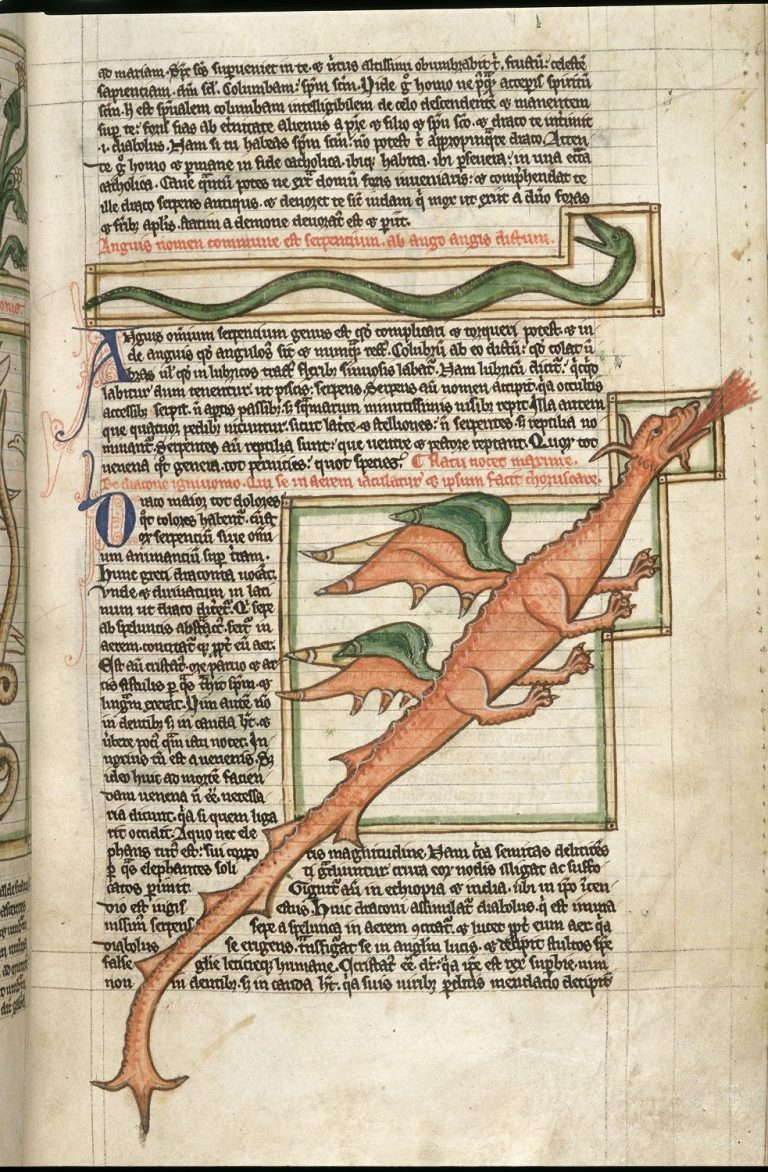 ad mariam. Sps scs superveniet in te. & virtus altissimi obumbrabit t. fructum: celestem
sapientiam. dm scl. Columbam: spm scm. Vide g homo ne pqm acceperis spiritum
scm. h est spualem columbam intelligibilem de celo descendente & manentem
sup te: foris fias ab eternitate alienus a pre & filio & spu sco. & draco te interimat
.i. diabolus. Nam si tu habeas spm scm: no potest t appropinquare draco. Atten
te g homo & permane in fide catholica. ibiq habita. ibi persevera: in una eccla
catholica. Cave quantu potes ne extra domu foris inveniaris: & comphendat te
ille draco serpens antiquus. & devoret te sic iudam q mox ut exiit a dno foras
& frib aplis. statim a demone devorat est & periit.
Anguis nomen commune est serpentium. ab ango angis dictum.
Anguis omnium serpentium genus est qd complicari & torqueri potest. & in
de anguis qd angulosus sit & numq rect. Colubrum ab eo dictu: qd colat um
bras ul qd in lubricos tractus flexib sinuosis labat. Nam lubricu dicit: qcqd
labitur dum tenentur ut piscis: serpens. Serpens au nomen accepit. qa occultis
accessib serpit. n aptis passib: s squamarum minutissimis nisib repit. Illa autem
que quatuor pedib nituntur. sicut lacte & stelliones: n serpentes s reptilia no
minant. Serpentes au reptilia sunt: que ventre & pectore reptant. Quor tot
venena qt genera. tot pernicies: quot species.
flatu nocet maxime.
De dracone ignivomo. Qui se in aerem iaculatur & ipsum facit choruscare.
Draco maior tot dolores
qt colores habent. cunct
or serpentiu sive omni
um animantiu sup tram.
Hunc greci draconta vocat.
vnde & dirivatum in lati
num ut draco diceret. Q sepe
ab speluncis abstract. fert in
aerem. concitatq ppt eu aer.
Est au cristat. ore parvo & ar
tis fistulis p qs trahit spm. &
linguam exerat. Vim aute no
in dentib s in cauda ht. &
vbere poti qm ictu nocet. In
noxius tn est a venenis. S
ideo huic ad morte facien
dam venena n ee necessa
ria dicunt. qa si quem liga
rit occidit. A quo nec ele
phans tut est: sui corpo
ris magnitudine. Nam cira semitas delitescens
p qs elephantes soli
ti gradiuntur crura eor nodis illigat ac suffo
catos perimit. Gignit au in ethyopia & india. ubi in ipo incen
dio est iugis estus. Huic draconi assimilat diabolus. q est imma
nissimus serpens sepe a spelunca in aerem concitat. & lucet ppt eum aer. qa
diabolus se erigens. transfigurat se in anglm lucis. & decipit stultos spe
false glie leticieq humane. Cristat ee dr: qa ipe est rex superbie. vim
non in dentib. s in cauda ht. qa suis virib perditis mendacio decipit